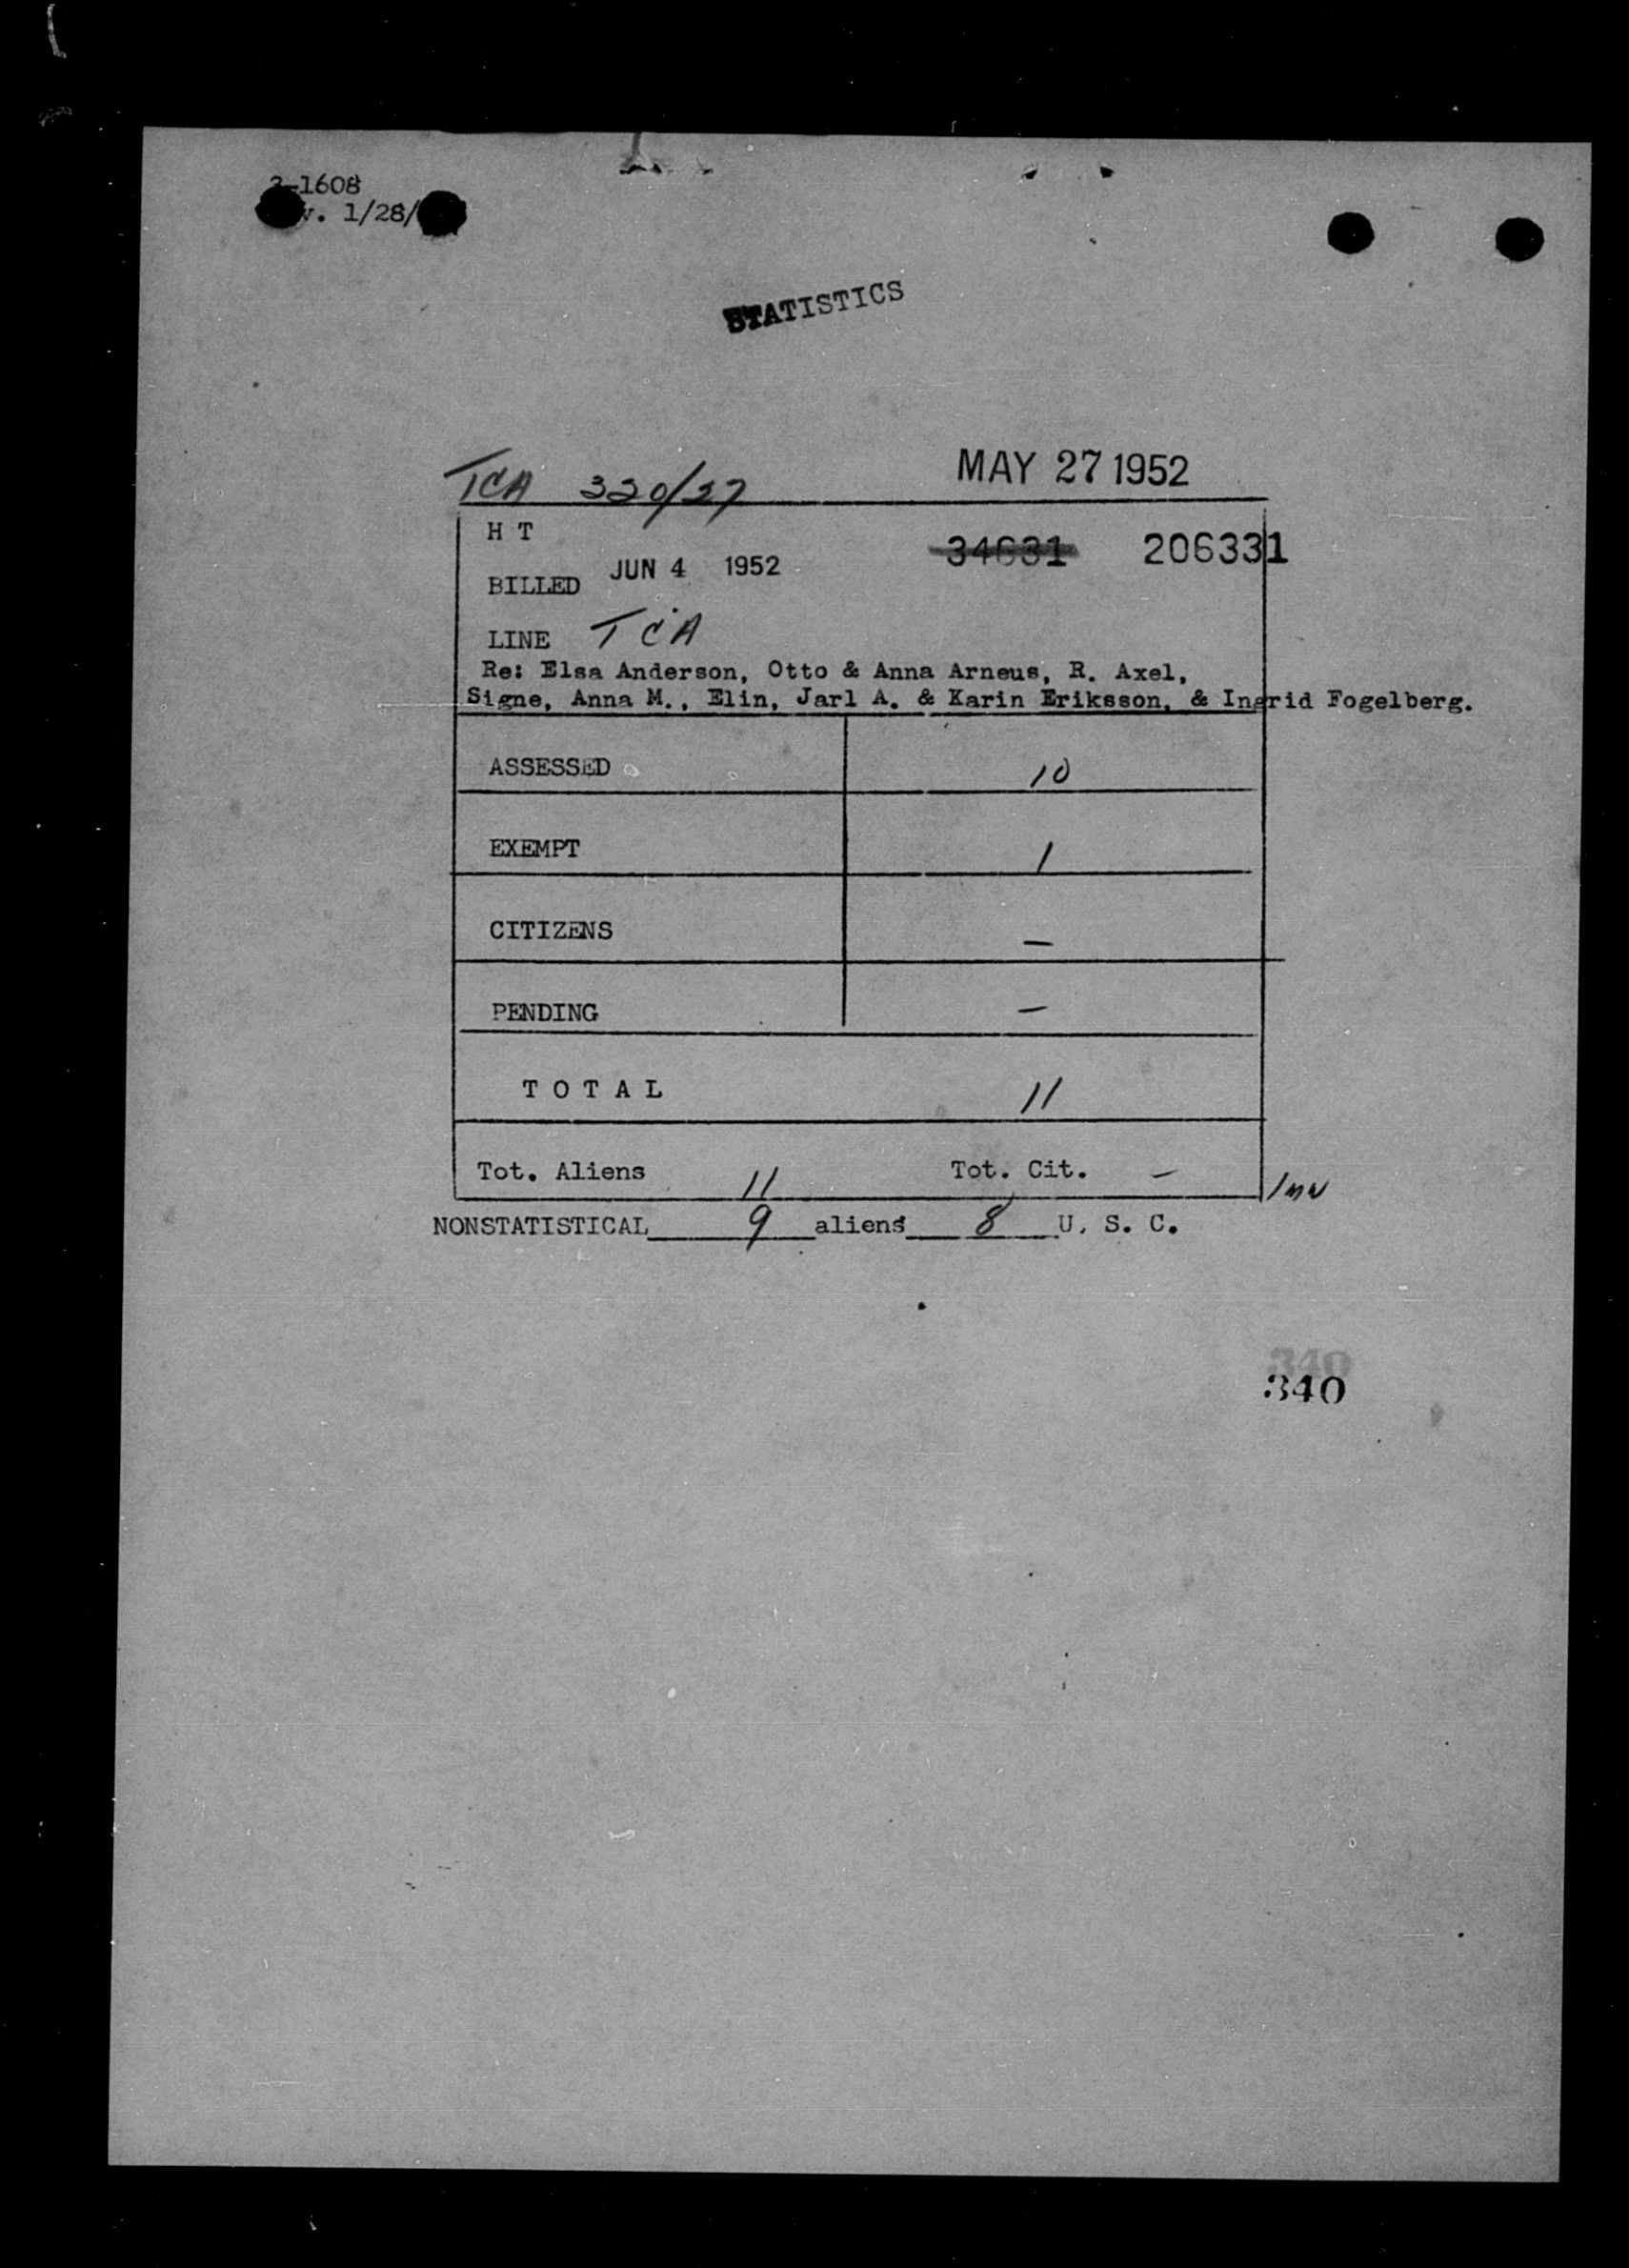 -1608
v. 1/28/
STATISTICS
TCA 320/27 MAY 27 1952
H T
34631 206331
BILLED JUN 4 1952
LINE TCA
Re: Elsa Anderson, Otto & Anna Arneus, R. Axel,
Signe, Anna M., Elin, Jarl A. & Karin Eriksson, & Ingrid Fogelberg.
ASSESSED 10
EXEMPT 1
CITIZENS —
PENDING —
T O T A L 11
Tot. Aliens 11 Tot. Cit. —
NONSTATISTICAL 9 aliens 8 U. S. C.
340
340